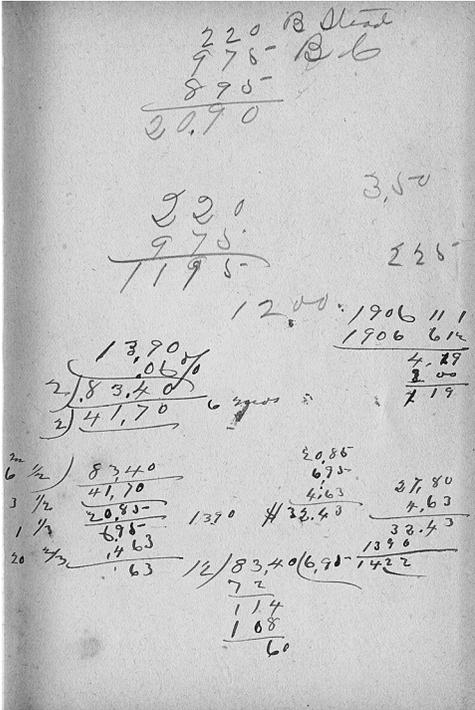 220 B Stead
975 B C
895
20.90
3,50
220
975.
1195
225
12.00.
1906 11 1
1906 6 12
4,19
119
13,90
.06%
2).83.40
2)41,70 6 mos
6 1/2) 8340
41,70
3 1/2 20.85
1 1/3 6,95
,463
20 2/3 .63
1390
20,85
6,95
4,63
$32.43
27,80
4,63
32.43
1390
1422
12)83,40(6,95
72
114
108
60